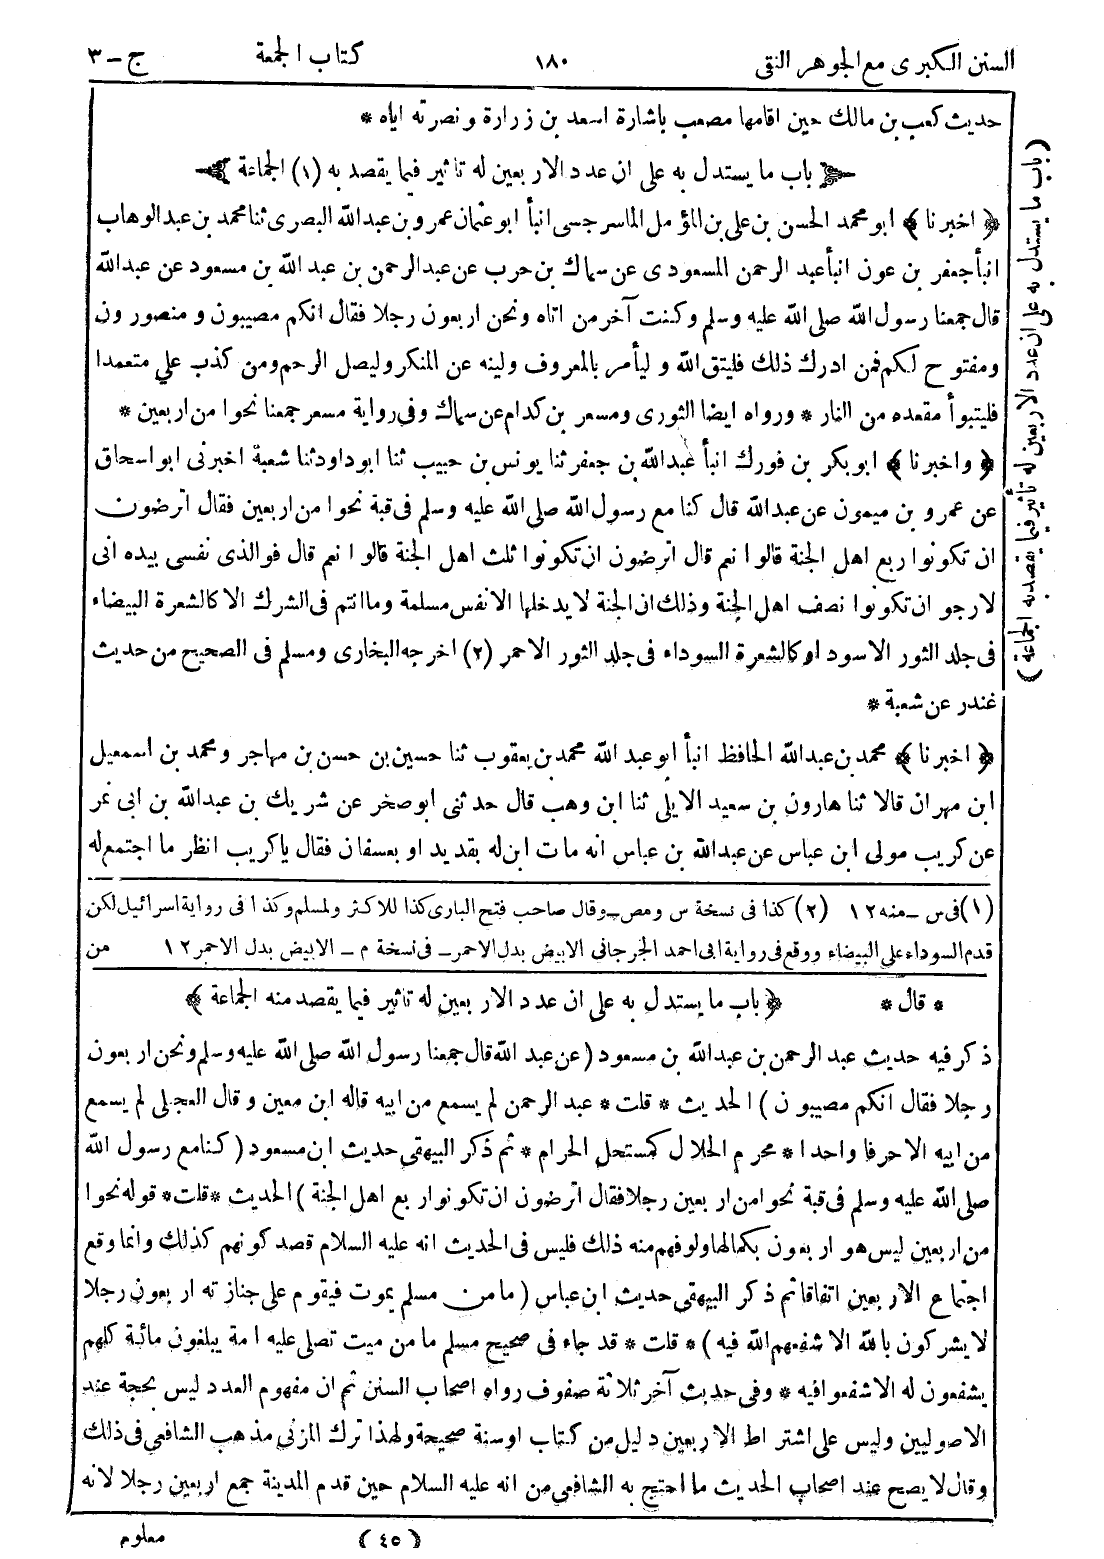 السنن الكبرى مع الجوهر النقى
١٨٠
كتاب الجمعة
ج ـ ٣
حديث كعب بن مالك حين اقامها مصعب باشارة اسعد بن زرارة ونصرته اياه *
﴿ باب ما يستدل به على ان عدد الاربعين له تاثير فيما يقصد به (١) الجماعة ﴾
﴿ اخبرنا ﴾ ابو محمد الحسن بن على بن المؤمل الماسرجسى انبأ ابو عثمان عمرو بن عبدالله البصرى ثنا محمد بن عبدالوهاب
انبأ جعفر بن عون انبأ عبد الرحمن المسعودى عن سماك بن حرب عن عبدالرحمن بن عبد الله بن مسعود عن عبدالله
قال جمعنا رسول الله صلى الله عليه وسلم وكنت آخر من اتاه ونحن اربعون رجلا فقال انكم مصيبون و منصورون
ومفتوح لكم فمن ادرك ذلك فليتق الله و ليأمر بالمعروف ولينه عن المنكر وليصل الرحم ومن كذب علي متعمدا
فليتبوأ مقعده من النار * ورواه ايضا الثورى ومسعر بن كدام عن سماك وفى رواية مسعر جمعنا نحوا من اربعين *
﴿ واخبرنا ﴾ ابو بكر بن فورك انبأ عبدالله بن جعفر ثنا يونس بن حبيب ثنا ابو داود ثنا شعبة اخبرنى ابو اسحاق
عن عمرو بن ميمون عن عبدالله قال كنا مع رسول الله صلى الله عليه وسلم فى قبة نحوا من اربعين فقال اترضون
ان تكونوا ربع اهل الجنة قالوا نعم قال اترضون ان تكونوا ثلث اهل الجنة قالوا نعم قال فوالذى نفسى بيده انى
لارجو ان تكونوا نصف اهل الجنة وذلك ان الجنة لا يدخلها الا نفس مسلمة وما انتم فى الشرك الا كالشعرة البيضاء
فى جلد الثور الاسود او كالشعرة السوداء فى جلد الثور الاحمر (٢) اخرجه البخارى ومسلم فى الصحيح من حديث
غندر عن شعبة *
﴿ اخبرنا ﴾ محمد بن عبدالله الحافظ انبأ ابو عبد الله محمد بن يعقوب ثنا حسين بن حسن بن مهاجر ومحمد بن اسمعيل
ابن مهران قالا ثنا هارون بن سعيد الايلى ثنا ابن وهب قال حدثنى ابو صخر عن شريك بن عبدالله بن ابى نمر
عن كريب مولى ابن عباس عن عبدالله بن عباس انه مات ابن له بقديد او بعسفان فقال ياكريب انظر ما اجتمع له
(١) فى س ـ منه ١٢ (٢) كذا فى نسخة س ومص ـ وقال صاحب فتح البارى كذا للاكثر ولمسلم وكذا فى رواية اسرائيل لكن
قدم السوداء على البيضاء ووقع فى رواية ابى احمد الجرجانى الابيض بدل الاحمر ـ فى نسخة م ـ الابيض بدل الاحمر ١٢
من
* قال * ﴿ باب ما يستدل به على ان عدد الاربعين له تاثير فيما يقصد منه الجماعة ﴾
ذكر فيه حديث عبد الرحمن بن عبدالله بن مسعود (عن عبد الله قال جمعنا رسول الله صلى الله عليه وسلم ونحن اربعون
رجلا فقال انكم مصيبون) الحديث * قلت * عبد الرحمن لم يسمع من ابيه قاله ابن معين وقال العجلى لم يسمع
من ابيه الا حرفا واحدا * محرم الحلال كمستحل الحرام * ثم ذكر البيهقى حديث ابن مسعود (كنا مع رسول الله
صلى الله عليه وسلم فى قبة نحوا من اربعين رجلا فقال اترضون ان تكونوا ربع اهل الجنة) الحديث * قلت * قوله نحوا
من اربعين ليس هو اربعون بكمالها ولو فهم منه ذلك فليس فى الحديث انه عليه السلام قصد كونهم كذلك وانما وقع
اجتماع الاربعين اتفاقا ثم ذكر البيهقى حديث ابن عباس (ما من مسلم يموت فيقوم على جنازته اربعون رجلا
لا يشركون بالله الا شفعهم الله فيه) * قلت * قد جاء فى صحيح مسلم ما من ميت تصلى عليه امة يبلغون مائة كلهم
يشفعون له الا شفعوا فيه * وفى حديث آخر ثلاثة صفوف رواه اصحاب السنن ثم ان مفهوم العدد ليس بحجة عند
الاصوليين وليس على اشتراط الاربعين دليل من كتاب او سنة صحيحة ولهذا ترك المزنى مذهب الشافعى فى ذلك
وقال لا يصح عند اصحاب الحديث ما احتج به الشافعى من انه عليه السلام حين قدم المدينة جمع اربعين رجلا لانه
(٤٥)
معلوم
(باب ما يستدل به على ان عدد الاربعين له تأثير فيما يقصد به الجماعة)